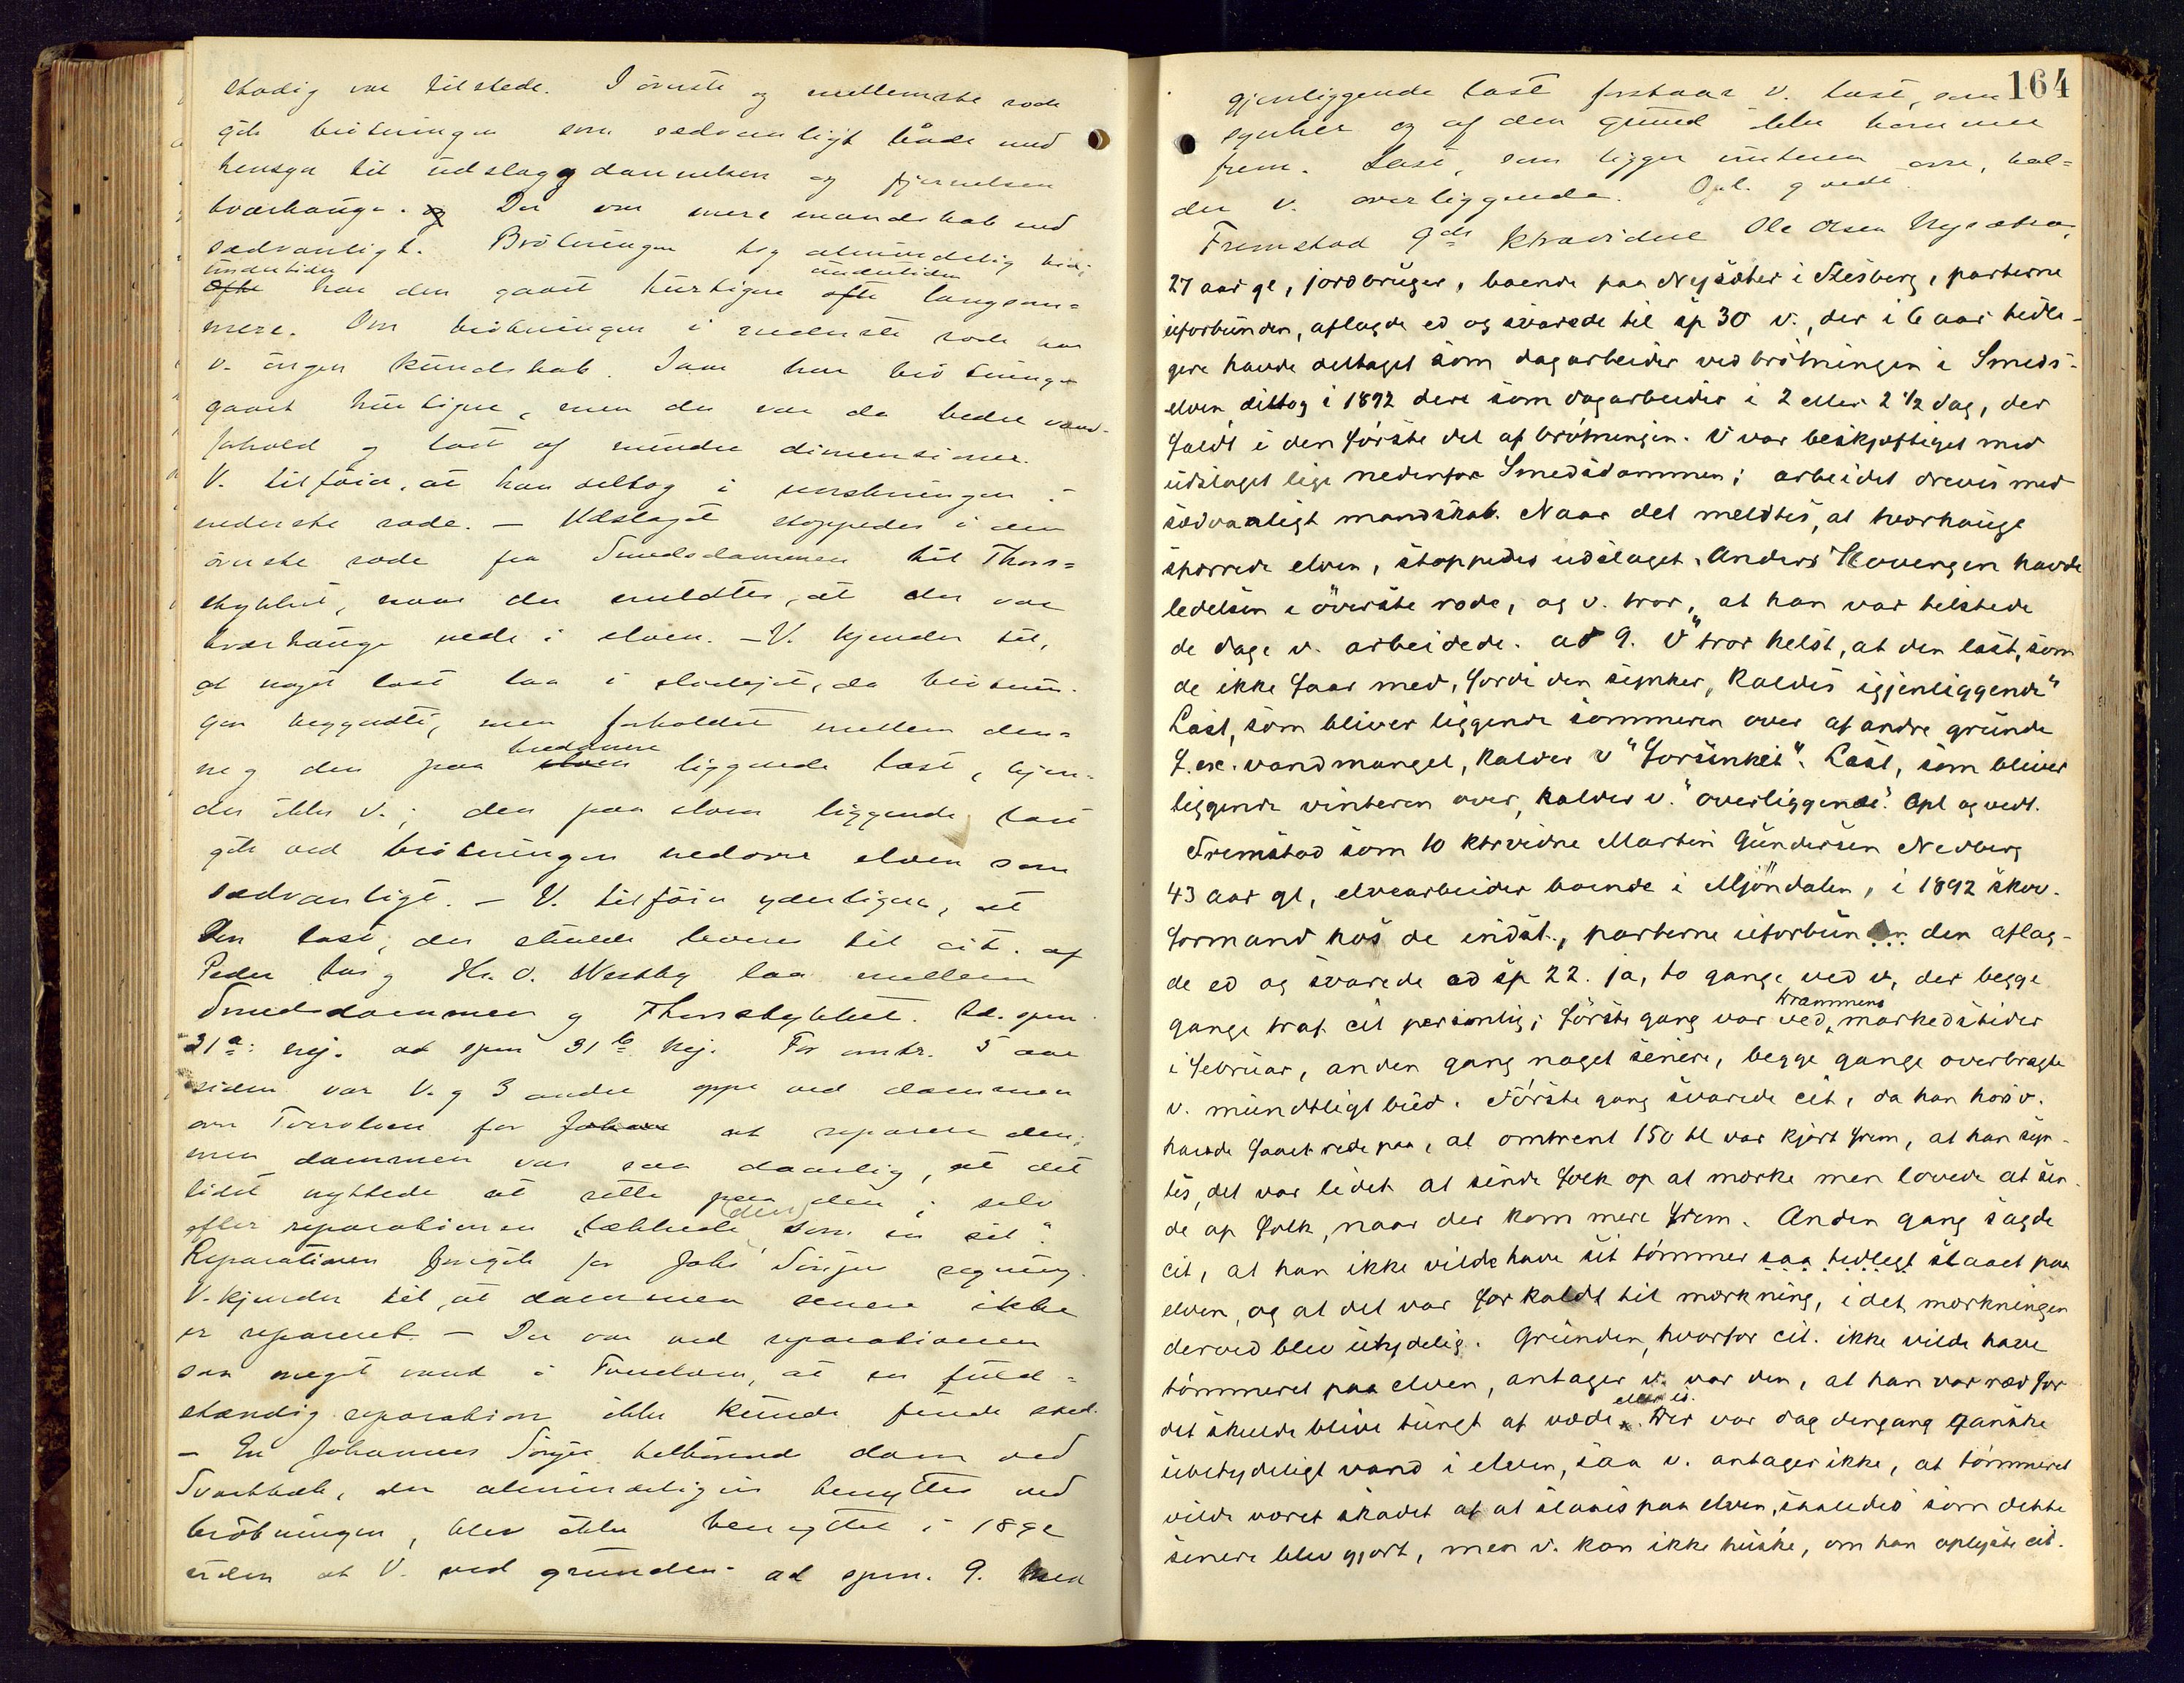 stadig var tilstede. I øverste og mellemste rode
gik brötningen som sedvanligt både med
hensyn til udslag g dannelsen og fjernelsen
tværhauge. og Der var mere mandskab end
sædvanligt. Brötningen tog almindelig tid;
undertiden undertiden
ofte har den gaaet hurtigere ofte langsom=
mere. Om brötningen i nederste rode har
v. ingen kundskab. Iaar har brötningen
gaaet hurtigere, men der var da bedre vand-
forhold og last af mindre dimensioner.
V. tilföier, at han deltog i rensningen i
nederste rode. — Udslaget stoppedes i den
överste rode fra Smedsdammen til Thors=
stykket, naar der meldtes, at der var
tværhauge nede i elven. — V. kjender til,
at noget last laa i elvelejet, da brötnin-
gen begyndte, men forholdet mellem den=
ne og den paa elven liggende last, kjen-
breddene
der ikke v.; den paa elven liggende last
gik ved brötningen nedover elven som
sædvanligt. — V. tilföier yderligere, at
den last, der skulde leveres til cit. af
Peder Lus og Kr. O. Westby laa mellem
Smedsdammen og Thorsstykket. Ad. spm
31 a: nej. ad spm 31 b. Nej. For omtr. 5 aar
siden var V. og 3 andre oppe ved dammen
over Tverelven for Johan at reparere den;
men dammen var saa daarlig, at det
lidet nyttede at rette paa den; selv
efter reparationen lækkede (den) "som en sil".
Reparationen foregik for Johs Sörjes regning.
V. kjender til, at dammen senere ikke
er repareret — Der var ved reparationen
saa meget vand i Tverelven, at en fuld=
stændig reparation ikke kunde finde sted.
— En Johannes Sörje tilhörende dam ved
Svartbæk, der almindeligvis benyttes ved
brötningen, blev ikke benyttet i 1892
uden at V. ved grunden. ad spm. 9. Med
164
gjenliggende last forstaar v. last, som
synker og af den grund ikke kommer
frem. Last, som ligger vinteren over, kal=
der v. overliggende. Opl. g vedt.
Fremstod 9de ktravidne Ole Olsen Nysæter,
27 aar gl, jordbruger, boende paa Nysæter i Flesberg, parterne
uforbunden, aflagde ed og svarede til sp 30 v., der i 6 aar tidli-
gere havde deltaget som dagarbeider ved brötningen i Smeds-
elven deltog i 1892 dere som dagarbeider i 2 eller 2 1/2 dag, der
faldt i den förste del af brötningen. V var beskjæftiget med
udslaget lige nedenfor Smedsdammen; arbeidet dreves med
sædvanligt mandskab. Naar det meldtes, at tvorhauge
sporrede elven, stoppedes udslaget. Anders Hovengen havde
ledelsen i överste rode, og v. tror, at han var tilstede
de dage v. arbeidede. ad 9. V tror helst, at den last, som
de ikke faar med, fordi den synker, kaldes "igjenliggende"
Last, som bliver liggende sommeren over af andre grunde
f.ex. vandmangel, kalder v "forsinket". Last, som bliver
liggende vinteren over, kalder v. "overliggende". Opl og vedt.
Fremstod som 10 ktrvidne Martin Gundersen Nedberg
43 aar gl, elvearbeider boende i Mjöndalen, i 1892 skov-
formand hos de indst., parterne uforbunden den aflag-
de ed og svarede ad sp 22. ja, to gange ved v, der begge
gange traf cit personlig; förste gang var ved markedstider
Drammens
i februar, anden gang noget senere, begge gange overbragte
v. mundtligt bud. Förste gang svarede cit, da han hos v.
havde faaet rede paa, at omtrent 150 tl var kjört frem, at han syn-
tes, det var lidet at sende folk op at mærke men lovede at sen-
de op folk, naar der kom mere frem. Anden gang sagde
cit, at han ikke vilde have sit tömmer saa tidlegt slaaet paa
elven, og at det var for koldt til mærkning, idet mærkningen
derved blev utydelig. Grunden, hvorfor cit. ikke vilde have
tömmeret paa elven, antager v. var den, at han var ræd for
det skulde blive tungt af væde. Der var dog dengang ganske
eller is.
ubetydeligt vand i elven, saa v. antager ikke, at tömmeret
vilde været skadet af at slaaes paa elven, saaledes som dette
senere blev gjort, men v. kan ikke huske, om han oplyste cit.